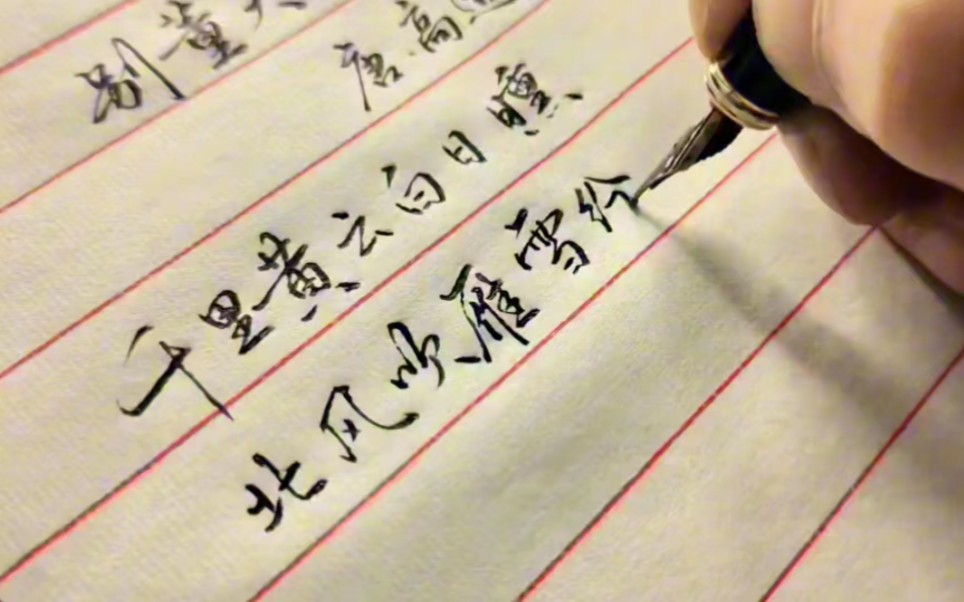 别董大
唐·高适
千里黄云白日曛
北风吹雁雪纷